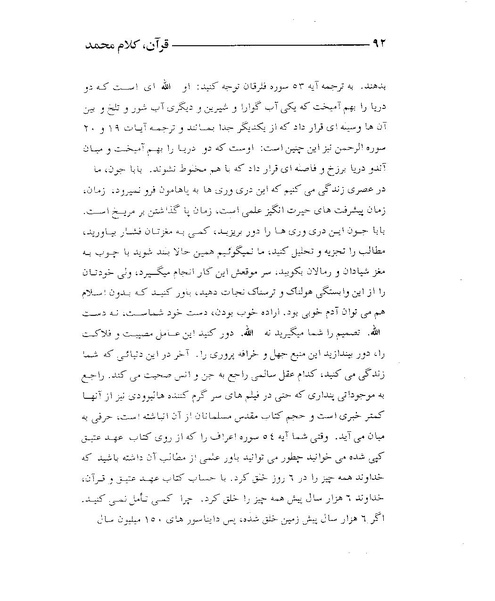 ۹۲ قرآن، کلام محمد
بدهند. به ترجمه آیه ۵۳ سوره فلرقان توجه کنید: او الله ای است که دو
دریا را بهم آمیخت که یکی آب گوارا و شیرین و دیگری آب شور و تلخ و بین
آن ها وسیله ای قرار داد که از یکدیگر جدا بمانند و ترجمه آیات ۱۹ و ۲۰
سوره الرحمن نیز این چنین است: اوست که دو دریا را بهم آمیخت و میان
آندو دریا برزخ و فاصله ای قرار داد که با هم مخلوط نشوند. بابا جون، ما
در عصری زندگی می کنیم که این دری وری ها به پاهامون فرو نمیرود، زمان،
زمان پیشرفت های حیرت انگیز علمی است، زمان پا گذاشتن بر مریخ است.
بابا جون ایـن دری وری ها را دور بریزید، کمی به مغزتان فشار بیاورید،
مطالب را تجزیه و تحلیل کنید، ما نمیگوئیم همین حالا بلند شوید با چوب به
مغز شیادان و رمالان بکوبید، سر موقعش این کار انجام میگیرد، ولی خودتان
را از این وابستگی هولناک و ترسناک نجات دهید، باور کنید که بدون اسلام
هم می توان آدم خوبی بود. اراده خوب بودن، دست خود شماست، نه دست
الله. تصمیم را شما میگیرید نه الله. دور کنید این عامل مصیبت و فلاکت
را، دور بیندازید این منبع جهل و خرافه پروری را. آخر در این دنیائی که شما
زندگی می کنید، کدام عقل سالمی راجع به جن و انس صحبت می کند. راجع
به موجوداتی پنداری که حتی در فیلم های سر گرم کننده هالیوودی نیز از آنها
کمتر خبری است و حجم کتاب مقدس مسلمانان از آن انباشته است، حرفی به
میان می آید. وقتی شما آیه ۵۴ سوره اعراف را که از روی کتاب عهد عتیق
کپی شده می خوانید چطور می توانید باور علمی از مطالب آن داشته باشید که
خداوند همه چیز را در ۶ روز خلق کرد. با حساب کتاب عهد عتیق و قرآن،
خداوند ۶ هزار سال پیش همه چیز را خلق کرد. چرا کمی تأمل نمی کنید.
اگر ۶ هزار سال پیش زمین خلق شده، پس دایناسور های ۱۵۰ میلیون سال